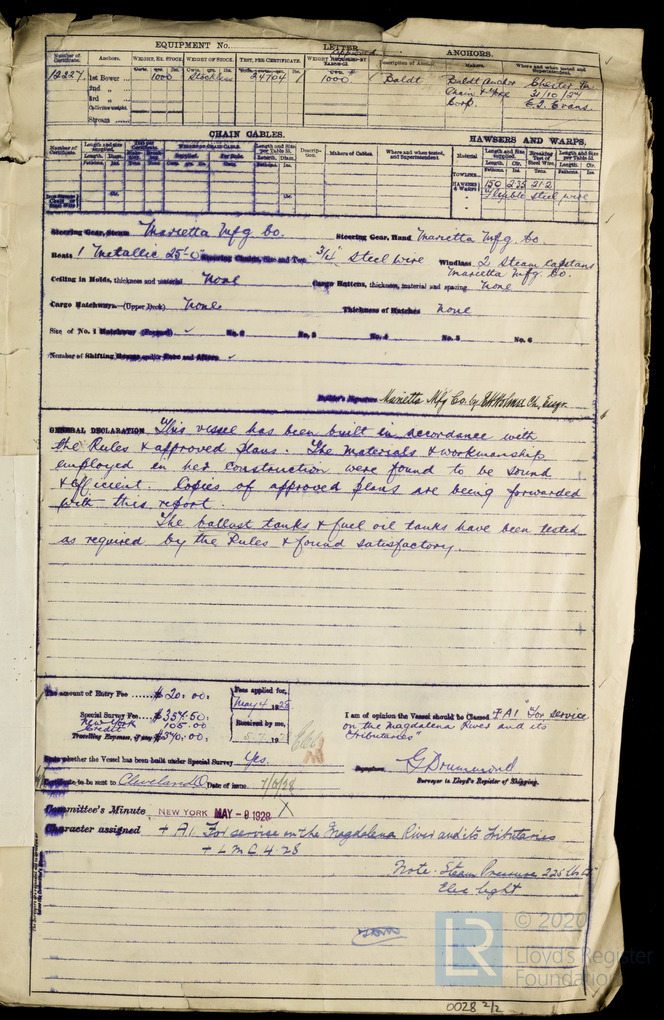 EQUIPMENT No.
LETTER
ANCHORS.
Number of Certificate. Anchors. WEIGHT, EX. STOCK. WEIGHT OF STOCK. TEST, PER CERTIFICATE. Description of Anchor. Makers. Where and when tested and Superintendent.
12227 1st Bower 1000 Stockless 24704 1000 Baldt Baldt Anchor Chester Pa.
2nd " Chain & Forge 31/10/27
3rd " Corp.
Collective weight.
Stream
CHAIN CABLES.
HAWSERS AND WARPS.
Number of Certificate. Length and size supplied. Length and Size per Table 53. Description. Makers of Cables. Where and when tested, and Superintendent. Material Length and Size supplied. Breaking Test of Steel Wire. Length and Size per Table 53.
TOWLINE
HAWSERS & WARPS 150 2.25 21.2
Flexible steel wire
Steering Gear, Steam Marietta Mfg. Co. Steering Gear, Hand Marietta Mfg. Co.
Boats 1 Metallic 25'-0" Steering Chains, Size and Test 3/4" Steel Wire Windlass 2 Steam Capstans
Marietta Mfg. Co.
Ceiling in Holds, thickness and material None Cargo Battens, thickness, material and spacing None
Cargo Hatchways.—(Upper Deck) None Thickness of Hatches None
Size of No. 1 Hatchway (Forward) ✓ No. 2 No. 3 No. 4 No. 5 No. 6
Number of Shifting Beams and/or Fore and Afters ✓
Builder's Signature Marietta Mfg Co. by Ch. Engr.
GENERAL DECLARATION This vessel has been built in accordance with
the Rules & approved plans. The materials & workmanship
employed in her construction were found to be sound
& efficient. Copies of approved plans are being forwarded
with this report.
The ballast tanks & fuel oil tanks have been tested
as required by the Rules & found satisfactory.
The amount of Entry Fee ...... $ 20.00: Fees applied for, May 4 1928
Special Survey Fee $ 357.50:
New York Credit 105.00 Received by me,
Travelling Expenses, if any $ 370.00:
I am of opinion the Vessel should be Classed +A1 "For service
on the Magdalena River and its
Tributaries"
State whether the Vessel has been built under Special Survey Yes.
Signature G Drummond
Surveyor to Lloyd's Register of Shipping.
Certificate to be sent to Cleveland O Date of issue
Committee's Minute NEW YORK MAY -8 1928
Character assigned + A1 For service on the Magdalena River and its Tributaries
+ L M C 4.28
Note: Steam Pressure 225 lbs
Elec. light
© 2020
LR
Lloyd's Register
Foundation
0028 2/2